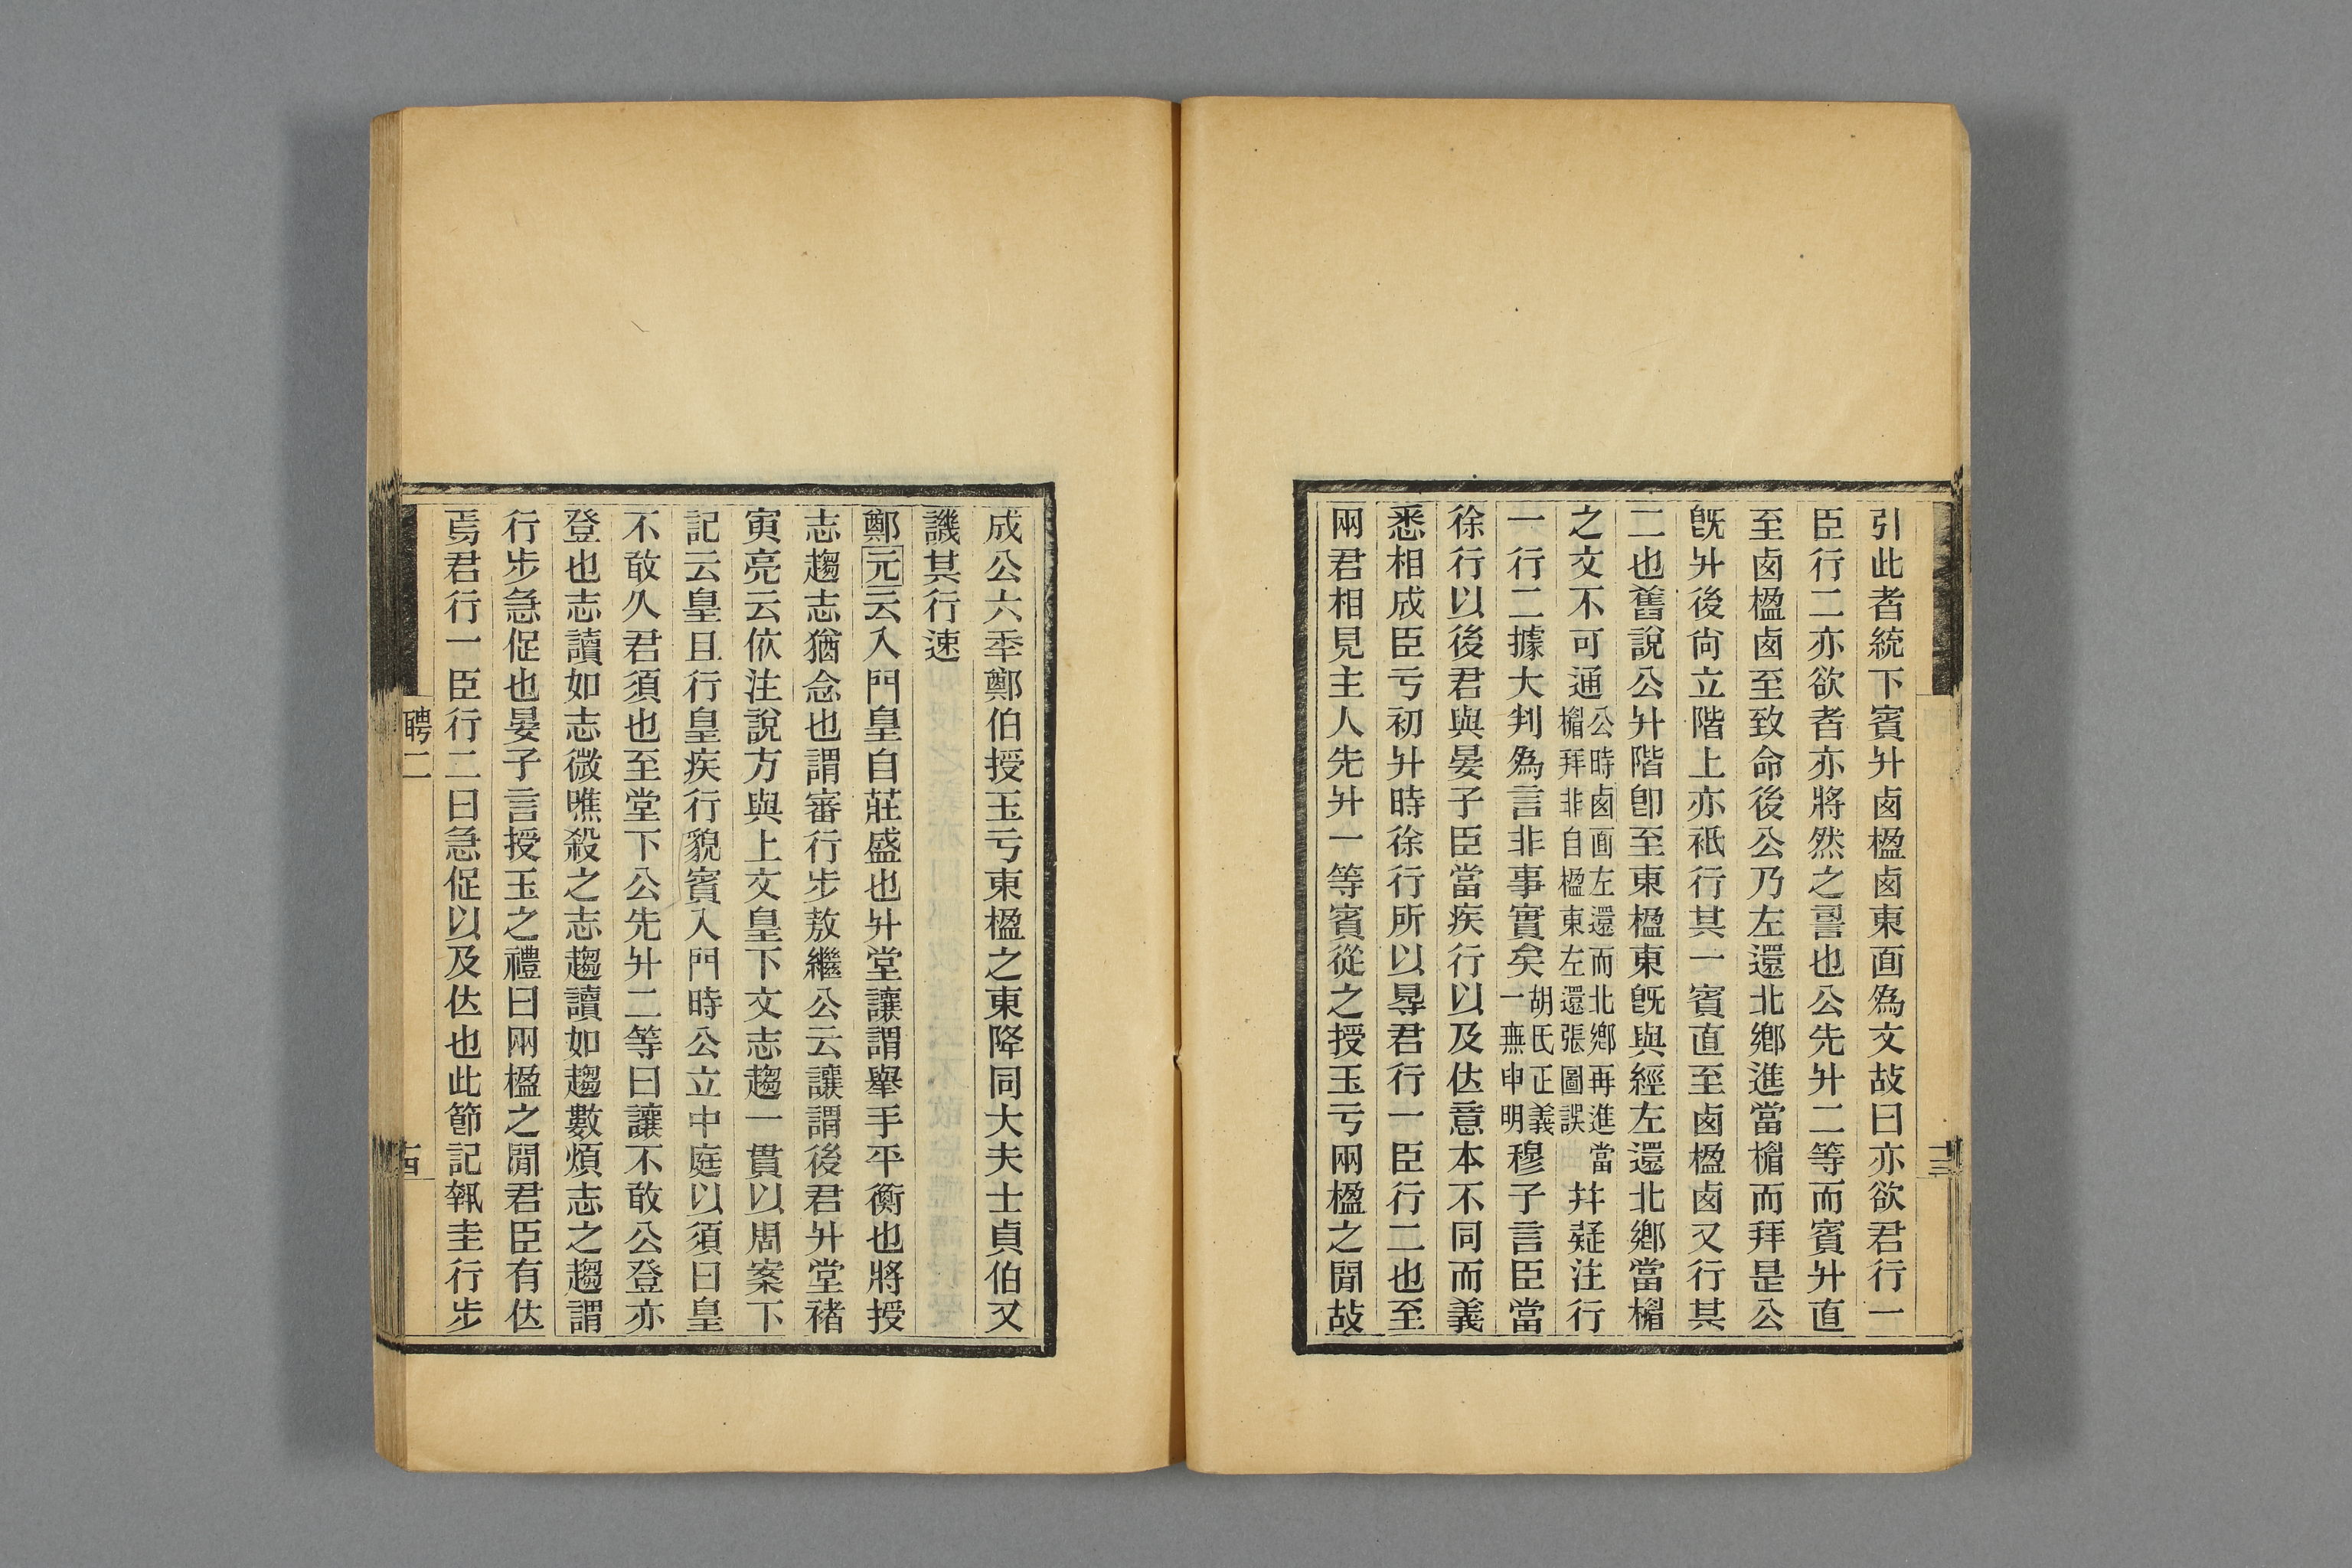 引此者統下賓廾卤楹卤東面爲文故曰亦欲君行一
臣行二亦欲者亦將然之䛐也公先廾二等而賓廾直
至卤楹卤至致命後公乃左還北鄉進當楣而拜是公
旣廾後尙立階上亦祇行其一賓直至卤楹卤又行其
二也舊說公廾階卽至東楹東旣與經左還北鄉當楣
之文不可通公時卤面左還而北鄉再進當楣拜非自楹東左還張圖誤幷疑注行
一行二據大判爲言非事實矣胡氏正義一無申明穆子言臣當
徐行以後君與晏子臣當疾行以及佉意本不同而義
悉相成臣亏初廾時徐行所以㝵君行一臣行二也至
兩君相見主人先廾一等賓從之授玉亏兩楹之閒故
十三
成公六秊鄭伯授玉亏東楹之東降同大夫士貞伯又
譏其行速
鄭元云入門皇自莊盛也廾堂讓謂舉手平衡也將授
志趨志猶念也謂審行步敖繼公云讓謂後君廾堂褚
寅亮云依注說方與上文皇下文志趨一貫以周案下
記云皇且行皇疾行貌賓入門時公立中庭以須曰皇
不敢久君須也至堂下公先廾二等曰讓不敢公登亦
登也志讀如志微噍殺之志趨讀如趨數煩志之趨謂
行步急促也晏子言授玉之禮曰兩楹之閒君臣有佉
焉君行一臣行二曰急促以及佉也此節記執圭行步
聘二
十四